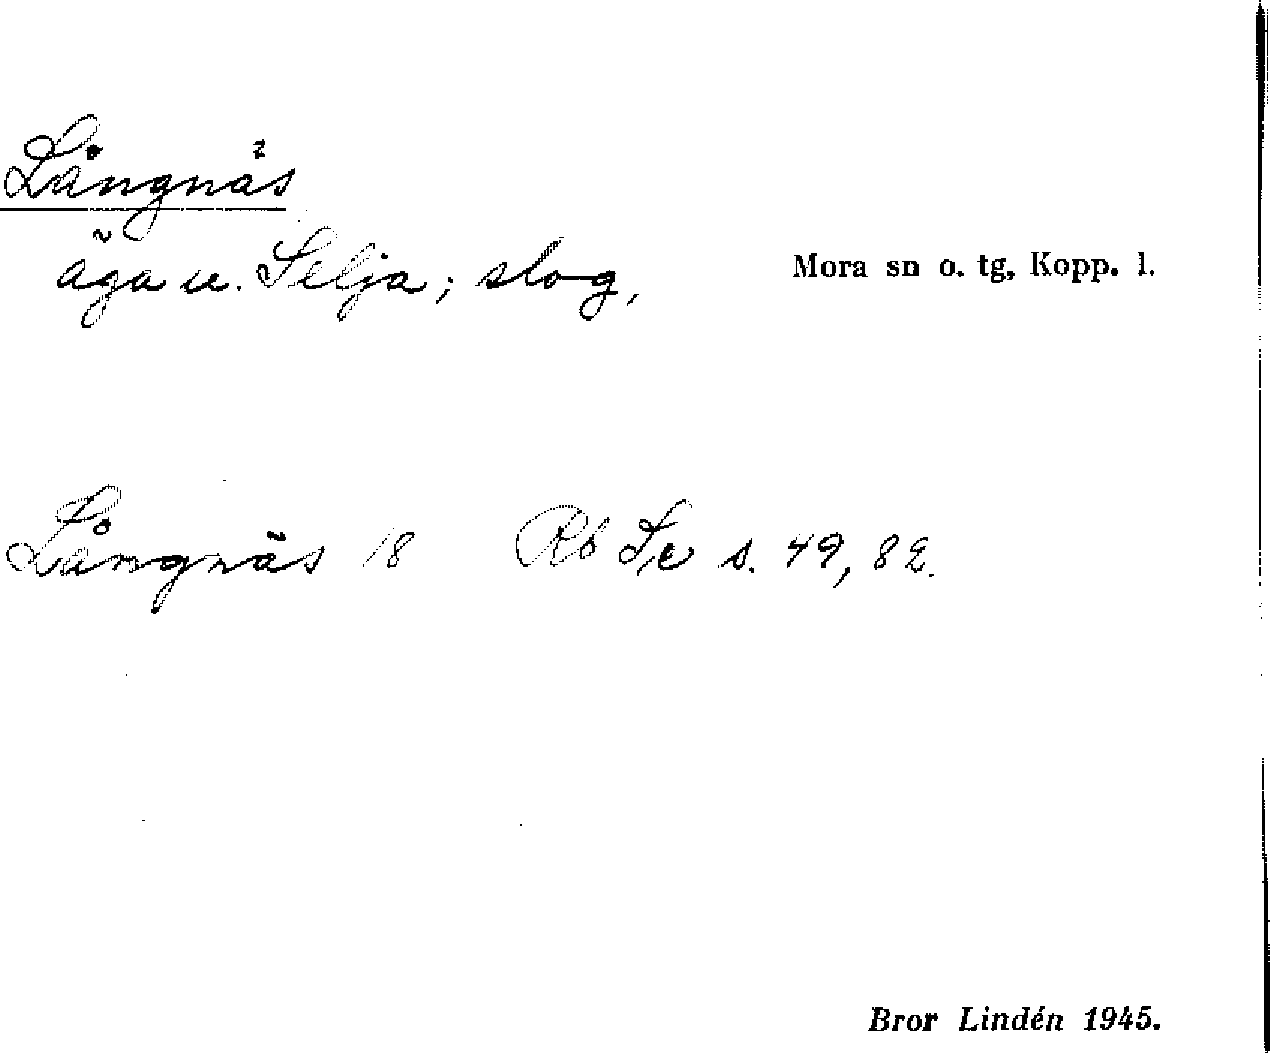 Långnäs
äga u. Selja; slog,
Mora sn o. tg, Kopp. l.
Långnäs 18 Rb Se s. 49, 82.
Bror Lindén 1945.